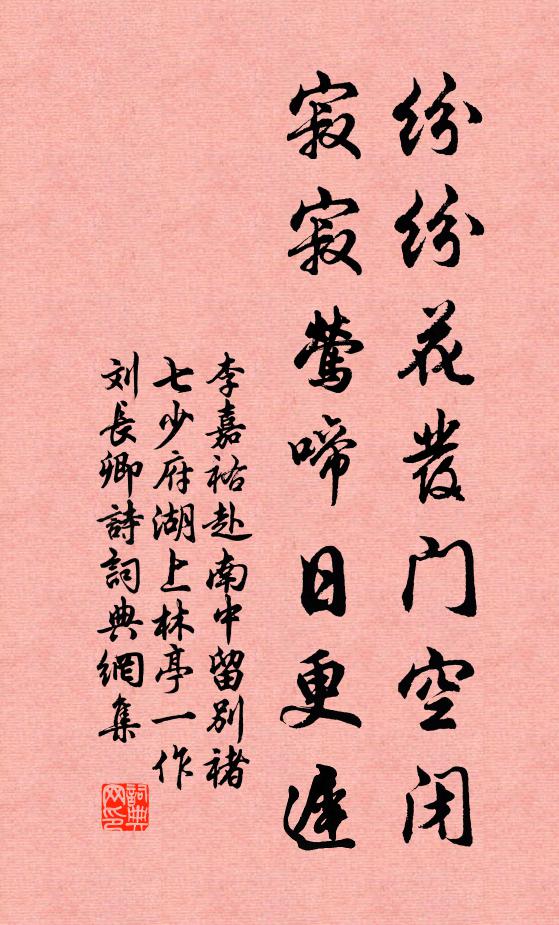 纷纷花發门空闭
寂寂莺啼日更遲
李嘉祐赴南中留别褚
七少府湖上林亭一作
刘長卿詩詞典網集
詞典网印